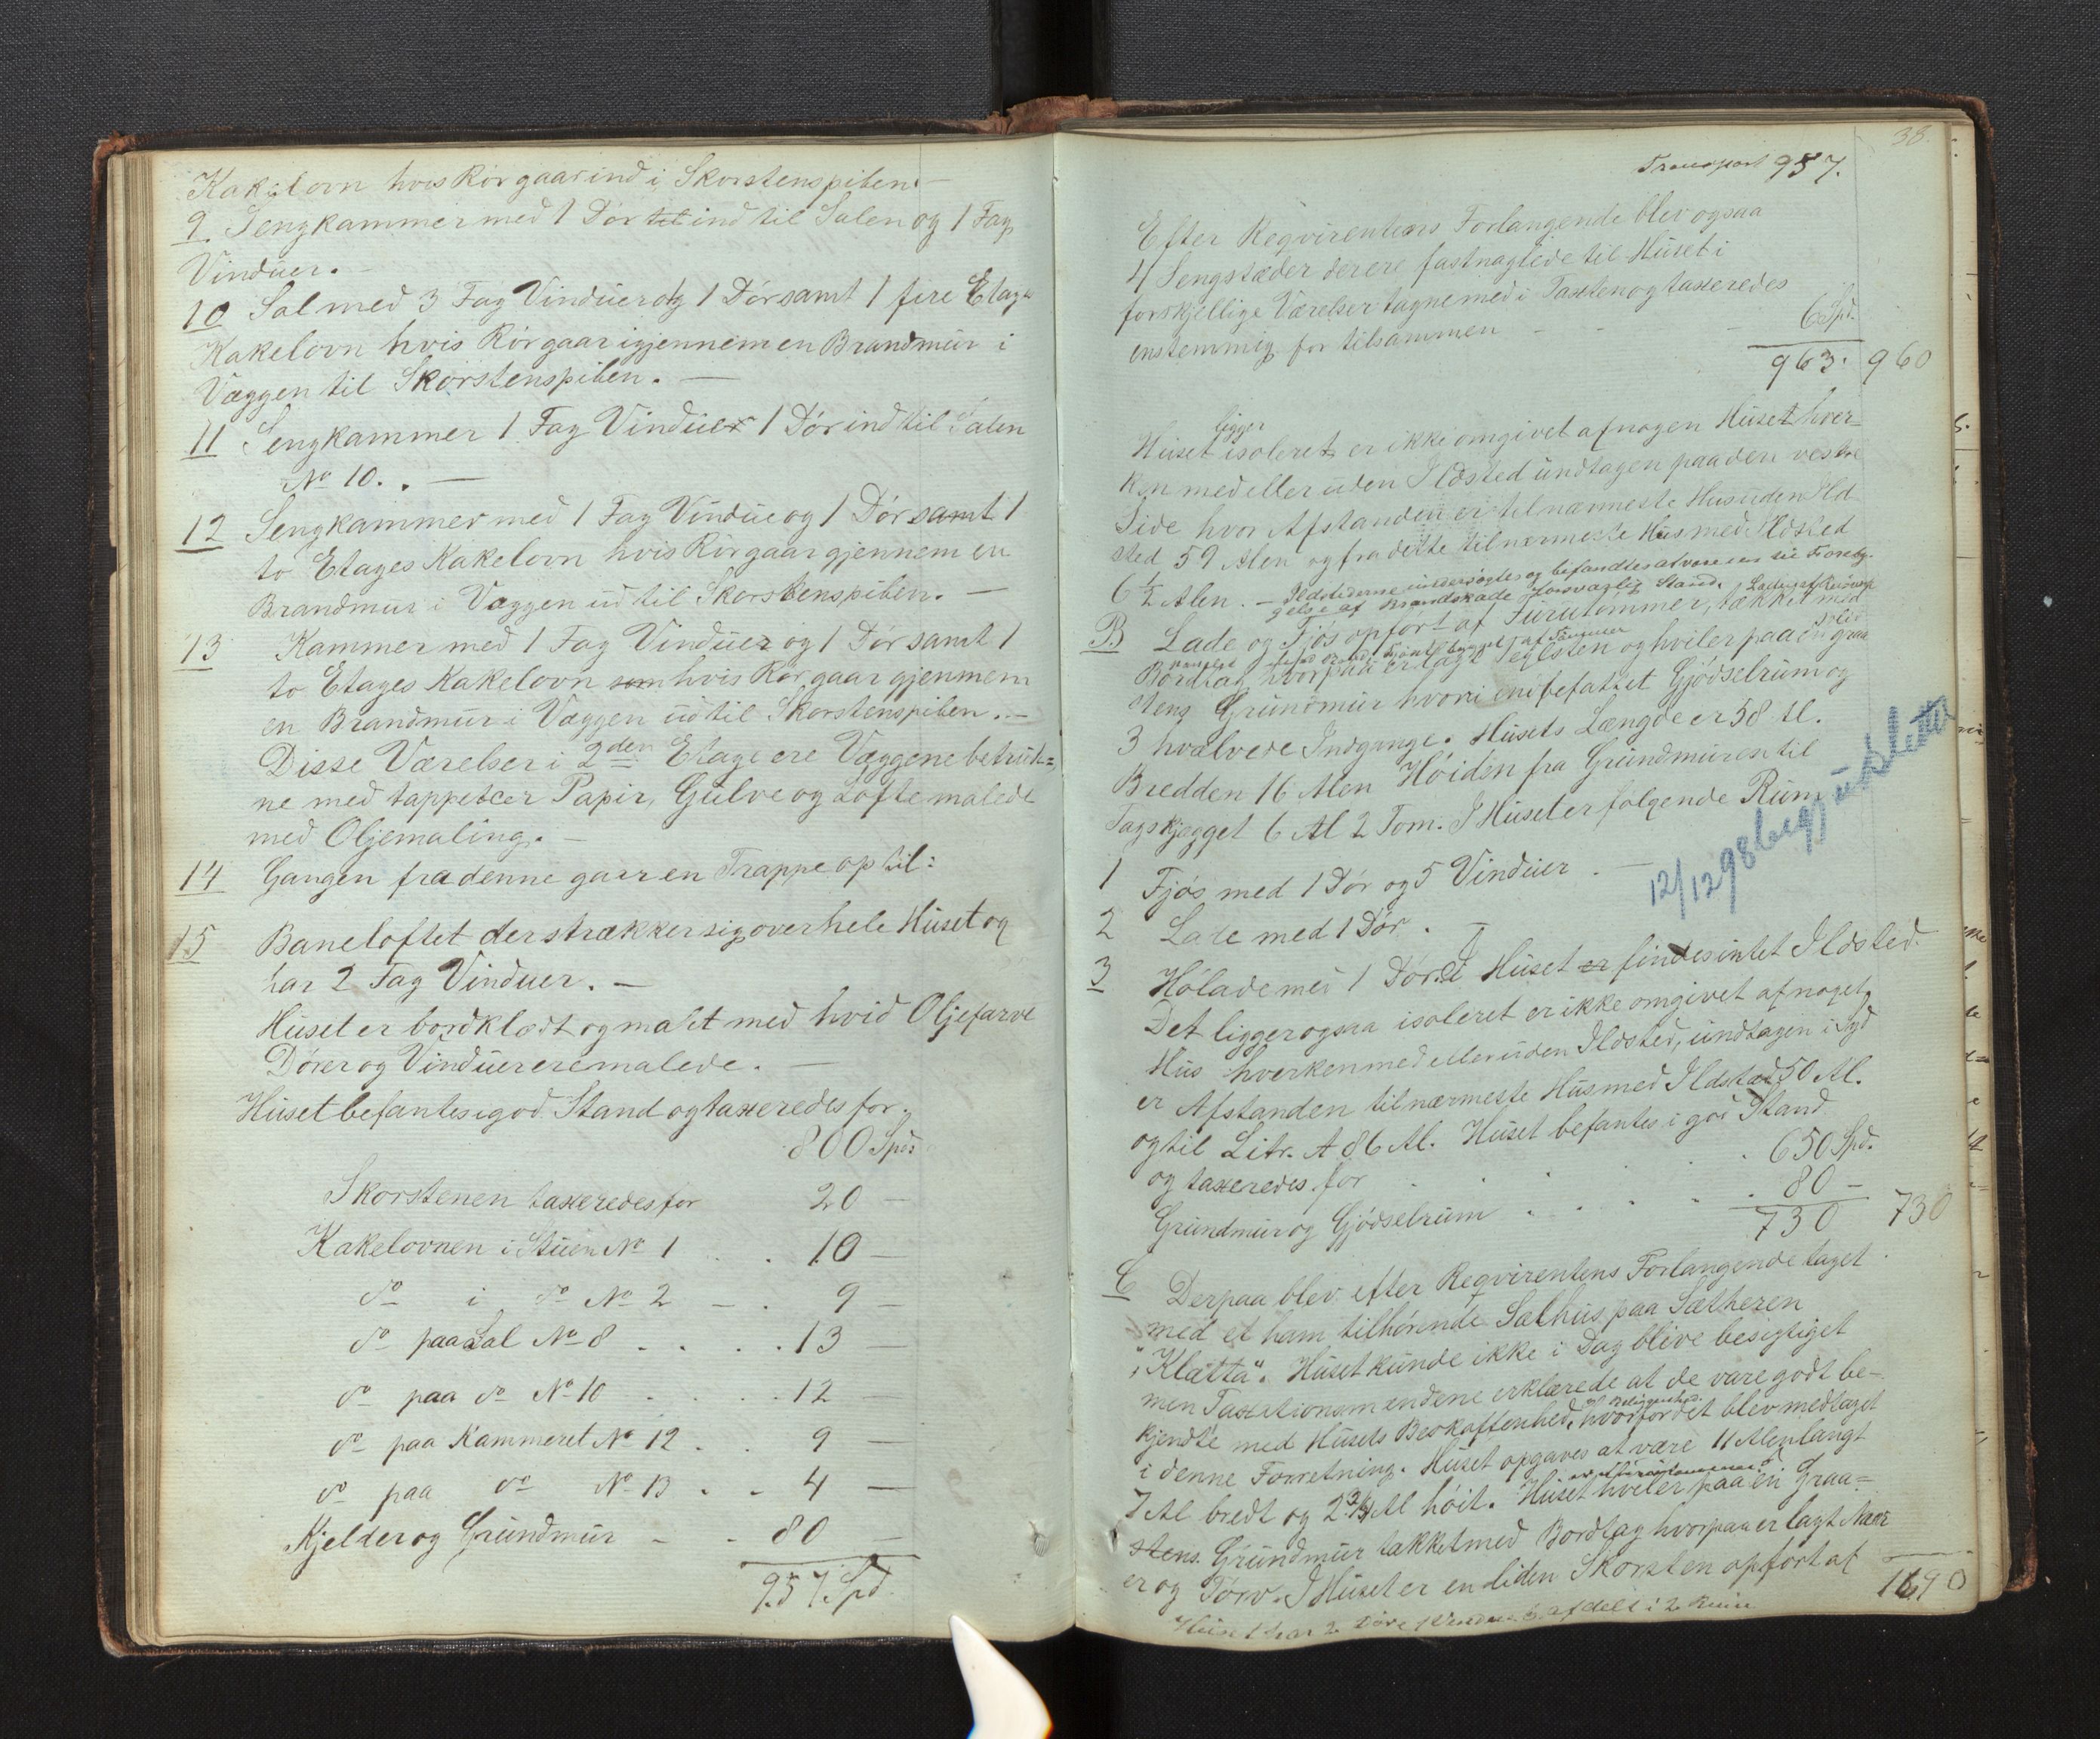 Kakelovn hvis Rör gaar ind i Skorstenspiben. —
9 Sengkammer med 1 Dör til ind til Salen og 1 Fag
Vinduer. —
10 Sal med 3 Fag Vinduer og 1 Dör samt 1 fire Etages
Kakelovn hvis Rör gaar igjennem en Brandmur i
Væggen til Skorstenspiben. —
11 Sengkammer 1 Fag Vinduer 1 Dör ind til Salen
No 10. . —
12 Sengkammer med 1 Fag Vindue og 1 Dör samt 1
to Etages Kakelovn hvis Rör gaar gjennem en
Brandmur i Væggen ud til Skorstenspiben. —
13 Kammer med 1 Fag Vinduer og 1 Dör samt 1
to Etages Kakelovn som hvis Rör gaar gjennem
en Brandmur i Væggen ud til Skorstenspiben. —
Disse Værelser i 2den Etage ere Væggene betruk=
ne med tappetcer Papir, Gulve og Lofte malede
med Oljemaling. —
14 Gangen fra denne gaar en Trappe op til:
15 Baneloftet der strækker sig over hele Huset og
har 2 Fag Vinduer. —
Huset er bordklædt og malet med hvid Oljefarve
Dörer og Vinduer ere malede. —
Huset befantes i god Stand og taxeredes for.
800 Spd
Skorstenen taxeredes for 20 —
Kakelovnen i Stuen No 1 . . 10 —
do i do No 2 — . 9 —
do paa Sal No 8 . . . . 13 —
do paa do No 10 . . . 12 —
do paa Kammeret No 12 . . 9 —
do paa do No 13 . . 4 —
Kjelder og Grundmur - - 80 —
957 Spd.
38.
Transport 957.
Efter Reqvirentens Forlangende blev ogsaa
4 Sengstæder der ere fastnaglede til Huset i
forskjellige Værelser tagne med i Taxten og taxeredes
enstemmig for tilsammen - - - 6 Spd.
963. 960
ligger
Huset isoleret, er ikke omgivet af nogen Huset hver=
ken med eller uden Ildsted undtagen paa den vestre
Side hvor Afstanden er til nærmeste Hus uden Ild
sted 59 Alen og fra dette til nærmeste Hus med Ildsted
6 1/2 Alen. — Ildstederne undersögtes og befandtes at være en til Forebyg-
gelse af Brandskade forsvarlig Stand.
B Lade og Fjös opfört af Furutömmer, tækket med
Bordtag hvorpaa er lagt Teglsten og hviler paa en graa
stens Grundmur hvori en befattet Gjödselrum og
3 hvælvede Indgange. Husets Længde er 58 Al.
Bredden 16 Alen Höiden fra Grundmuren til
Tagskjægget 6 Al 2 Tom. I Huset er fölgende Rum
12/12 98 begj udslettet
1 Fjös med 1 Dör og 5 Vinduer . —
2 Lade med 1 Dör . —
3 Hölade med 1 Dör. I Huset er findes intet Ildsted.
Det ligger ogsaa isoleret er ikke omgivet af noget
Hus hverken med eller uden Ildsted, undtagen i Syd
er Afstanden til nærmeste Hus med Ildsted 50 Al.
og til Litr. A 86 Al. Huset befantes i god Stand
og taxeredes for . . . . . . 650 Spd.
Grundmur og Gjödselrum . . . . . 80 —
730 730
C Derpaa blev efter Reqvirentens Forlangende taget
med et ham tilhörende Sælhus paa Sætheren
"Klætta". Huset kunde ikke i Dag blive besigtiget
men Taxationsmendene erklærede at de vare godt be-
kjendte med Husets Beskaffenhed, hvorfor det blev medtaget
og Beliggenhed.
i denne Forretning. Huset opgaves at være 11 Alen langt
7 Al bredt og 2 3/4 Al höit. Huset hviler paa en Graa=
stens Grundmur tækket med Bordtag hvorpaa er lagt Næv
er og Torv. I Huset er en liden Skorsten opfört af
1690
Huset har 2 Döre 1 Vindue afdelt i 2 Rum